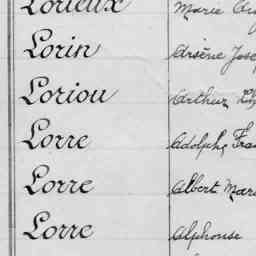 Lorieux Marie
Lorin Arsène Jose
Loriou Arthur
Lorre Adolphe Fra
Lorre Albert Mar
Lorre Alphonse